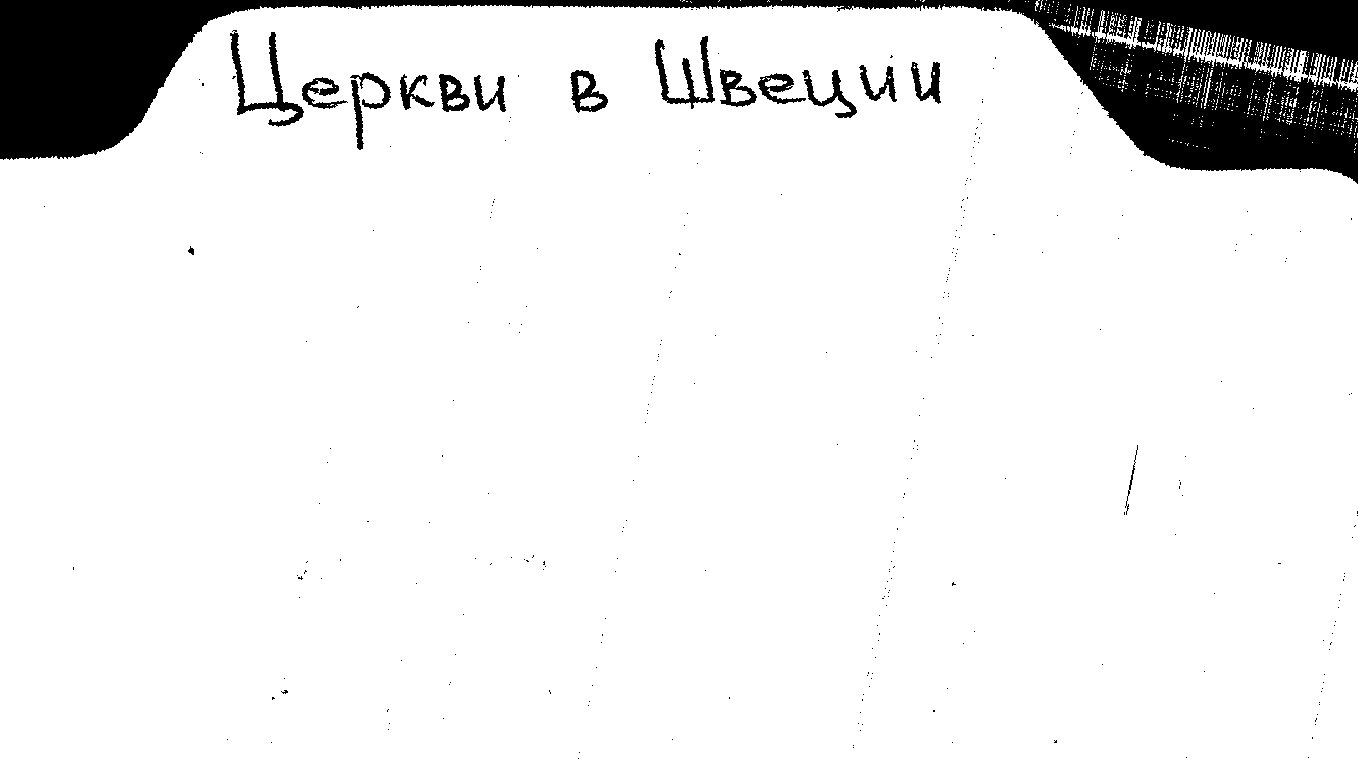 Церкви в Швеции